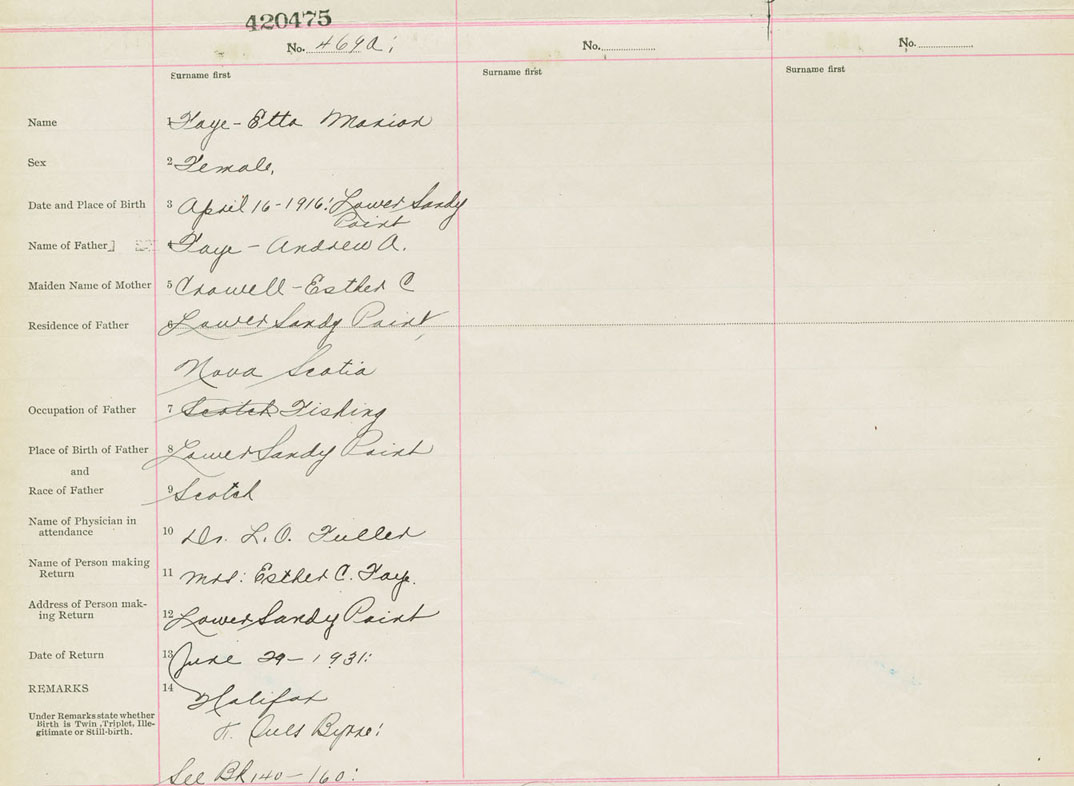 420475
No. 469a; No. No.
Surname first Surname first Surname first
Name 1 Faye - Etta Marion
Sex 2 Female,
Date and Place of Birth 3 April 16 - 1916: Lower Sandy
Point
Name of Father 4 Faye - Andrew A.
Maiden Name of Mother 5 Crowell - Esther C
Residence of Father 6 Lower Sandy Point,
Nova Scotia
Occupation of Father 7 Scotch Fishing
Place of Birth of Father 8 Lower Sandy Point
and
Race of Father 9 Scotch
Name of Physician in
attendance 10 Dr. L. O. Fuller
Name of Person making
Return 11 Mrs: Esther C. Faye.
Address of Person mak-
ing Return 12 Lower Sandy Point
Date of Return 13 June 29 - 1931:
REMARKS 14 Halifax
Under Remarks state whether
Birth is Twin, Triplet, Ille-
gitimate or Still-birth.
Byrne:
See Bk 140 - 160: